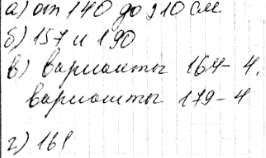 а) от 140 до 210 см
б) 157 и 190
в) варианты 164-4,
варианты 179-4
г) 161